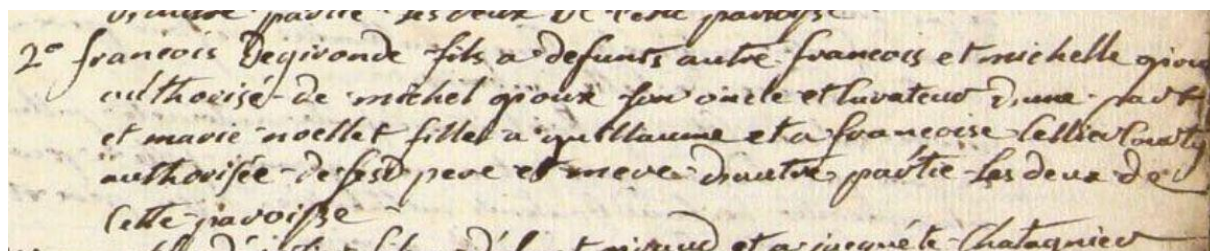 d'autre partie les deux de cette paroisse
2° francois Degironde fils a defunts autre francois et michelle gioux
authorisé de michel gioux son oncle et curateur d'une part
et marie noellet fille a guillaume et a francoise Cellier
authorisée de sesd pere et mere d'autre partie Les deux de
Cette paroisse
et a jacquéte Chatagnier